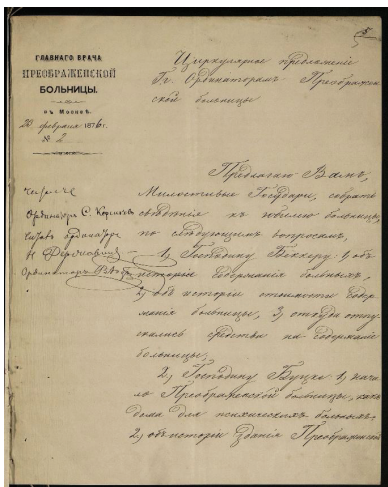 ГЛАВНАГО ВРАЧА
ПРЕОБРАЖЕНСКОЙ
БОЛЬНИЦЫ.
въ Москвѣ.
20 февраля 1876 г.
№ 2
Циркулярное предложеніе
Гг. Ординаторамъ Преображен
ской больницы
Предлагаю Вамъ,
Милостивые Государи, собрать
свѣдѣнія къ юбилею больницы
по слѣдующимъ вопросамъ,
1) Господину Беккеру 1) объ
исторіи содержанія больныхъ,
2) объ исторіи стоимости содер
жанія больницы, 3) откуда отпу
скались средства на содержаніе
больницы;
2) Господину Буцке 1) нача
ло Преображенской больницы, какъ
дома для психическихъ больныхъ
2) объ исторіи зданія Преображенской
читалъ
Ординаторъ С. Корсаковъ
читалъ ординаторъ
Ординаторъ